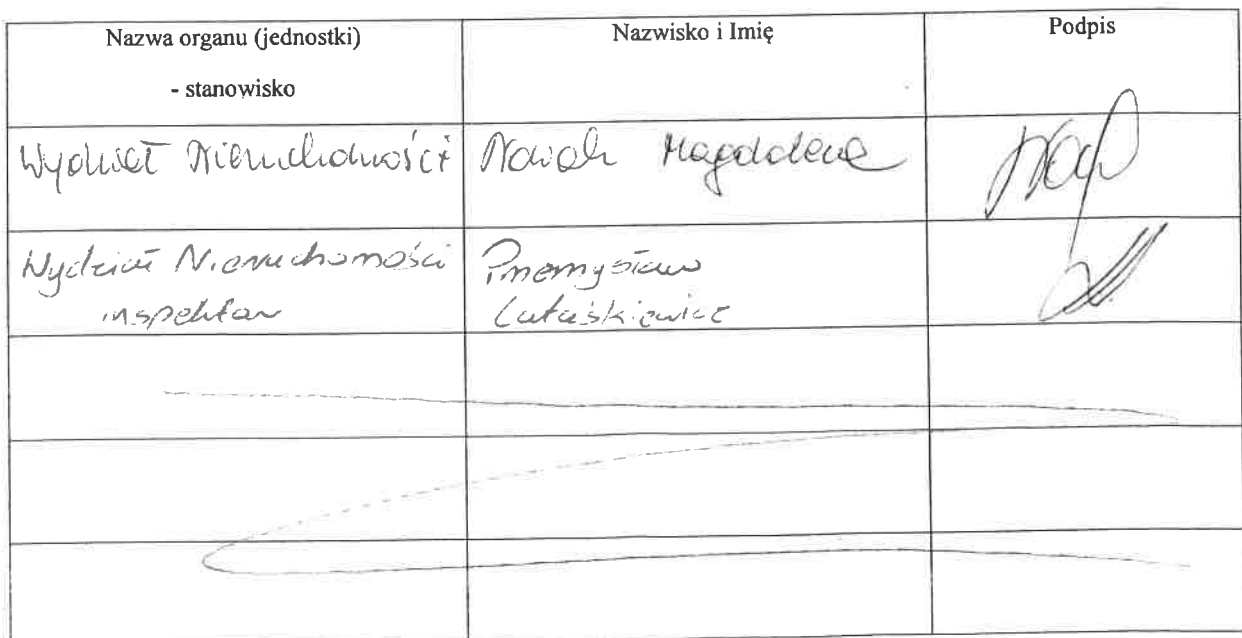 Nazwa organu (jednostki)
- stanowisko
Nazwisko i Imię
Podpis
Wydział Nieruchomości
Nowak Magdalena
Wydział Nieruchomości
inspektor
Przemysław